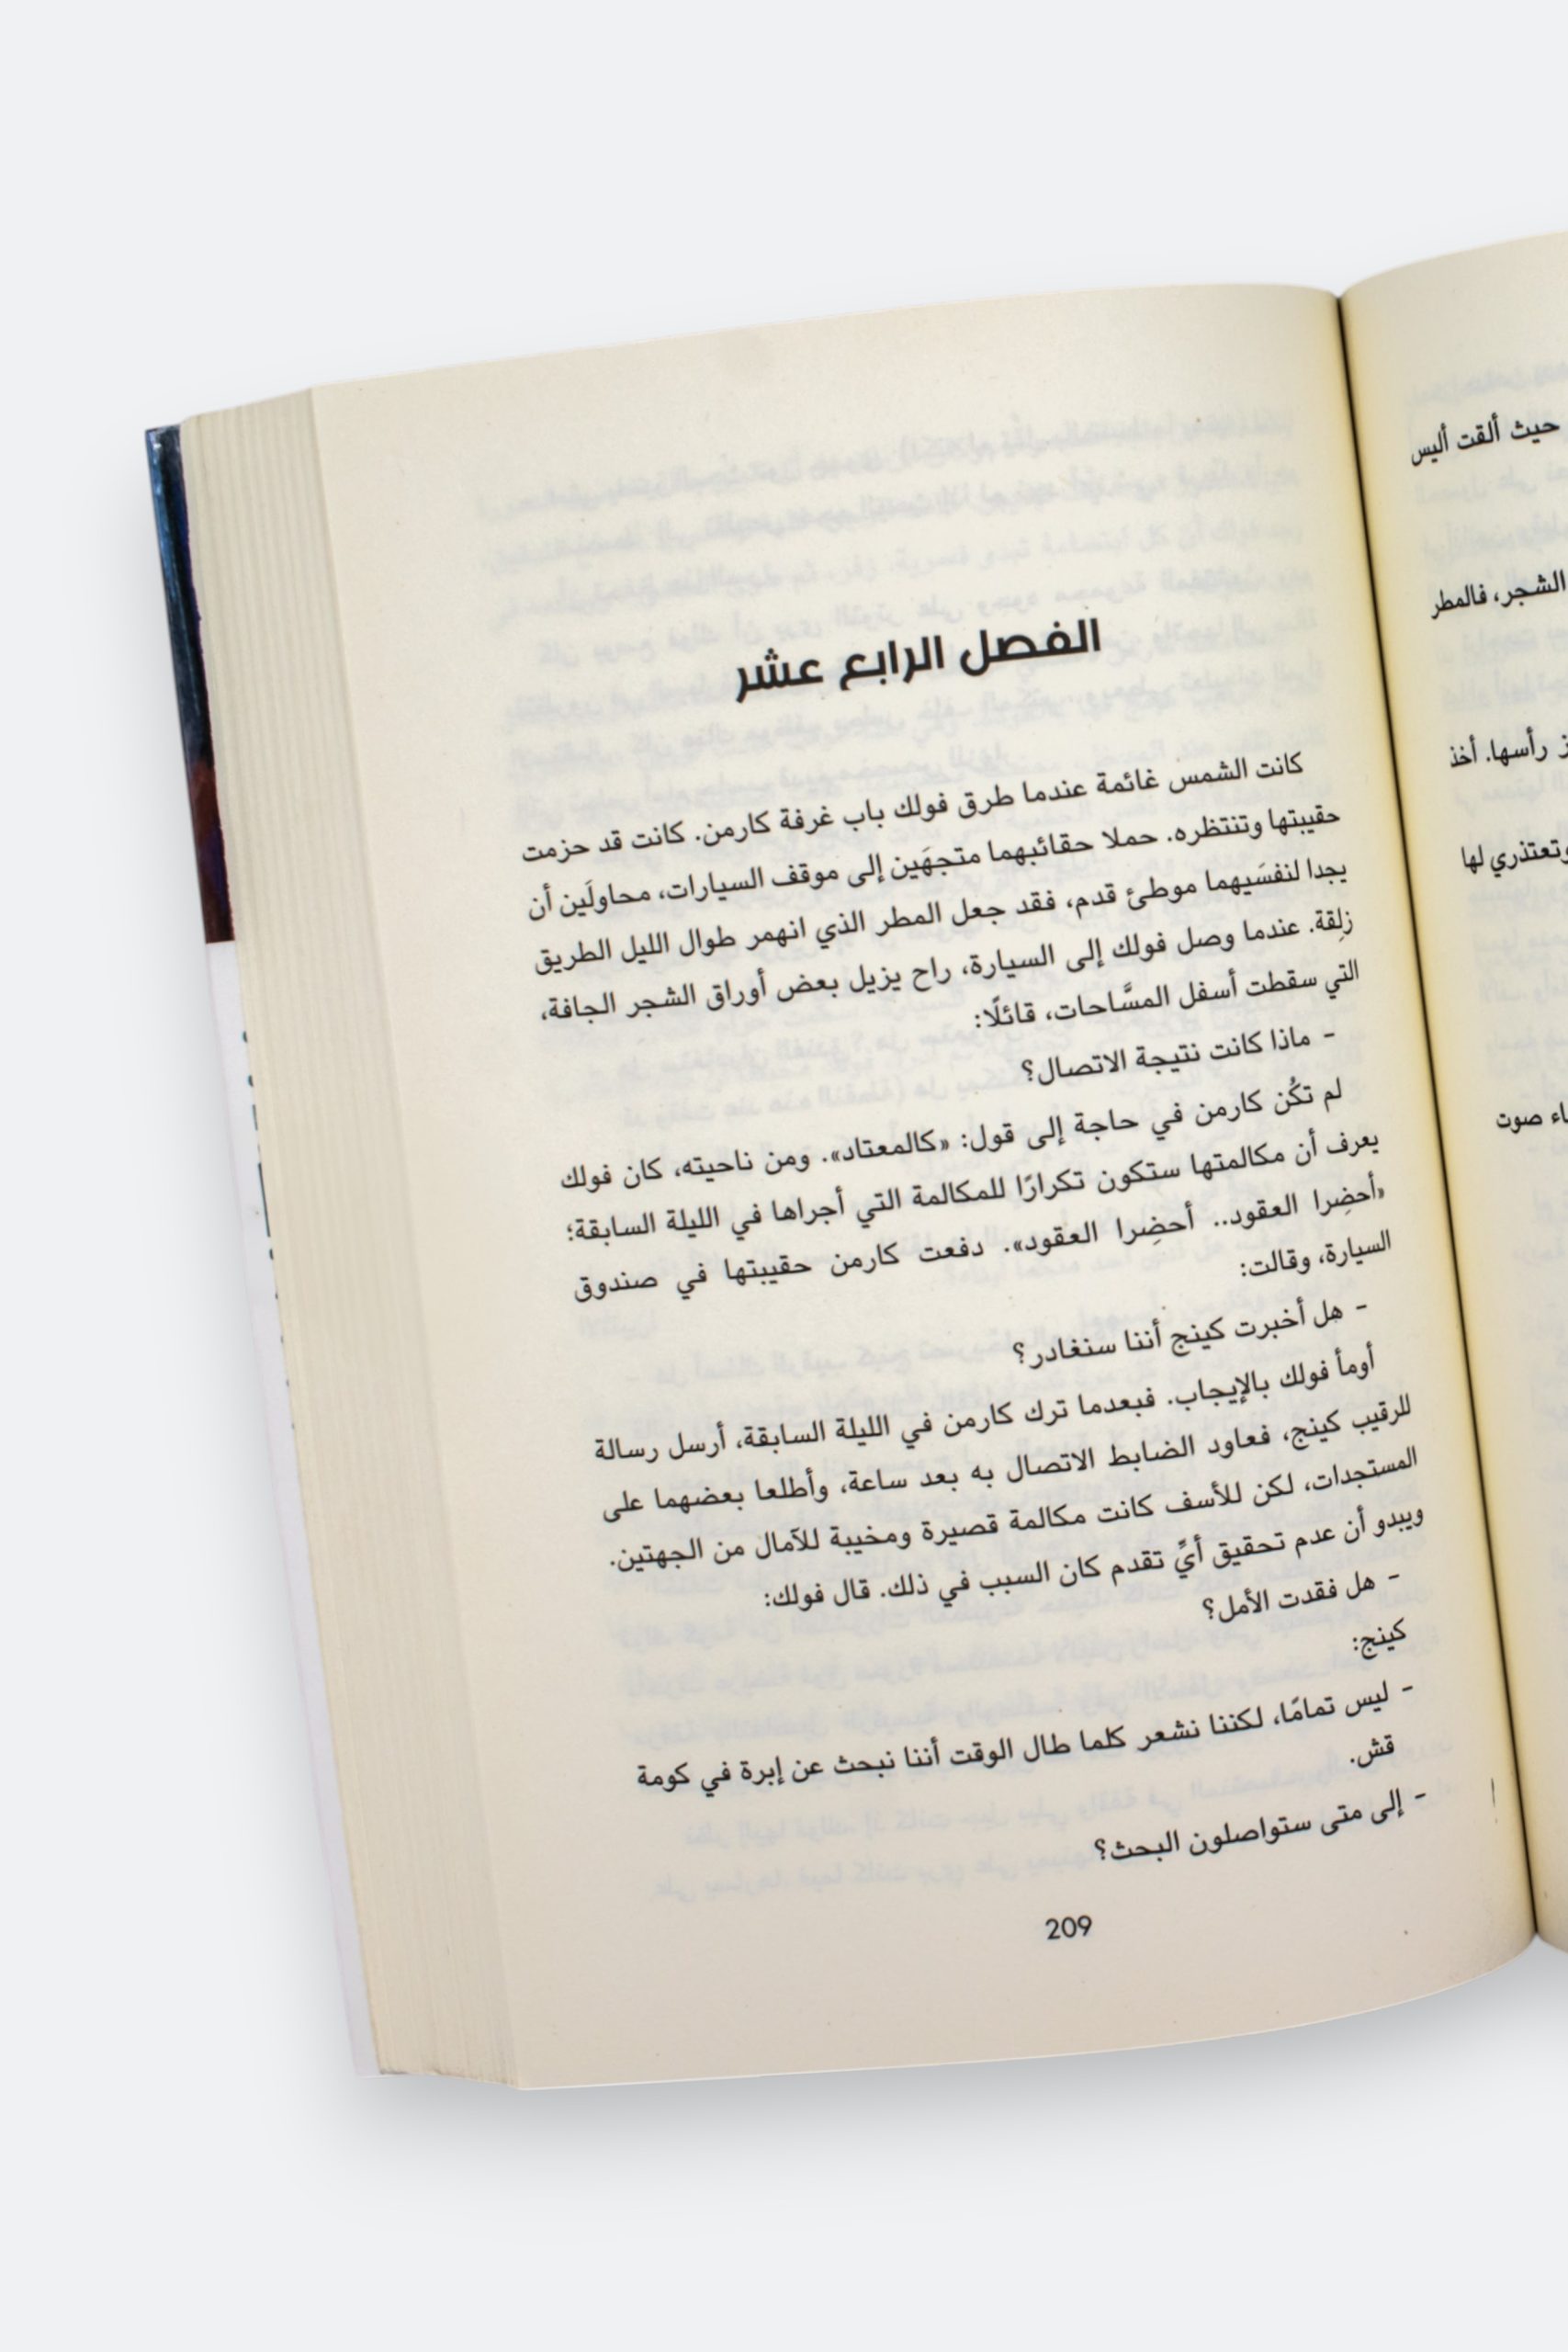 حيث ألقت أليس
الشجر، فالمطر
رأسها. أخذ
وتعتذري لها
صوت
الفصل الرابع عشر
كانت الشمس غائمة عندما طرق فولك باب غرفة كارمن. كانت قد حزمت
حقيبتها وتنتظره. حملا حقائبهما متجهَين إلى موقف السيارات، محاولَين أن
يجدا لنفسَيهما موطئ قدم، فقد جعل المطر الذي انهمر طوال الليل الطريق
زلِقة. عندما وصل فولك إلى السيارة، راح يزيل بعض أوراق الشجر الجافة،
التي سقطت أسفل المسَّاحات، قائلًا:
- ماذا كانت نتيجة الاتصال؟
لم تكُن كارمن في حاجة إلى قول: «كالمعتاد». ومن ناحيته، كان فولك
يعرف أن مكالمتها ستكون تكرارًا للمكالمة التي أجراها في الليلة السابقة؛
«أحضِرا العقود.. أحضِرا العقود». دفعت كارمن حقيبتها في صندوق
السيارة، وقالت:
- هل أخبرت كينج أننا سنغادر؟
أومأ فولك بالإيجاب. فبعدما ترك كارمن في الليلة السابقة، أرسل رسالة
للرقيب كينج، فعاود الضابط الاتصال به بعد ساعة، وأطلعا بعضهما على
المستجدات، لكن للأسف كانت مكالمة قصيرة ومخيبة للآمال من الجهتين.
ويبدو أن عدم تحقيق أيِّ تقدم كان السبب في ذلك. قال فولك:
- هل فقدت الأمل؟
كينج:
- ليس تمامًا، لكننا نشعر كلما طال الوقت أننا نبحث عن إبرة في كومة
قش.
- إلى متى ستواصلون البحث؟
209